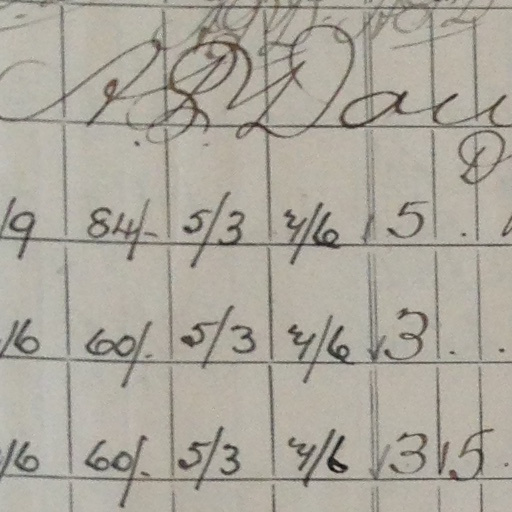 /9 84/- 5/3 4/6 5 .
/6 60/- 5/3 4/6 3 . .
/6 60/- 5/3 4/6 3 15 .